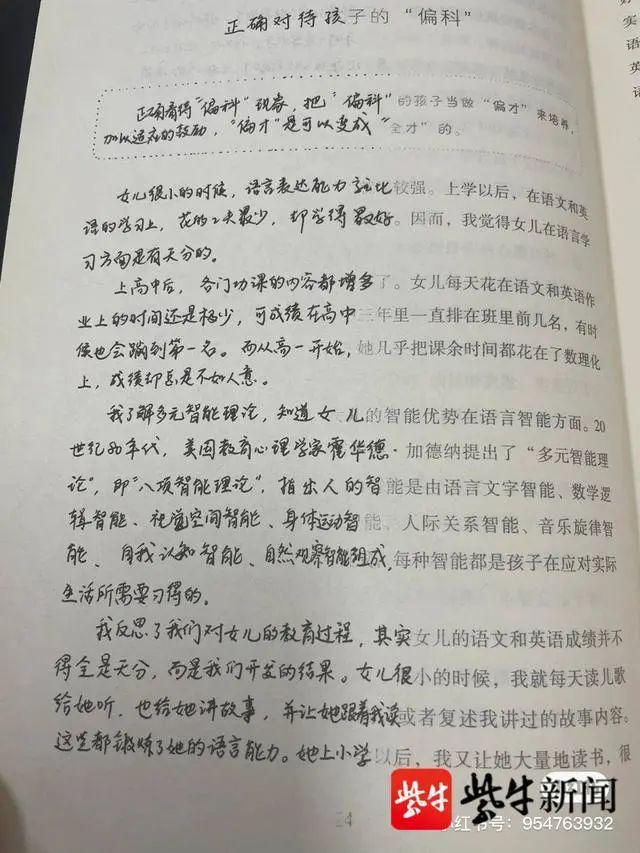 正确对待孩子的“偏科”
正确看待“偏科”现象，把“偏科”的孩子当做“偏才”来培养，
加以适应的鼓励，“偏才”是可以变成“全才”的。
女儿很小的时候，语言表达能力就比较强。上学以后，在语文和英
语的学习上，花的工夫最少，却学得最好。因而，我觉得女儿在语言学
习方面是有天分的。
上高中后，各门功课的内容都增多了。女儿每天花在语文和英语作
业上的时间还是极少，可成绩在高中三年里一直排在班里前几名，有时
候也会蹦到第一名。而从高一开始，她几乎把课余时间都花在了数理化
上，成绩却总是不如人意。
我了解多元智能理论，知道女儿的智能优势在语言智能方面。20
世纪80年代，美国教育心理学家霍华德·加德纳提出了“多元智能理
论”，即“八项智能理论”，指出人的智能是由语言文字智能、数学逻
辑智能、视觉空间智能、身体运动智能、人际关系智能、音乐旋律智
能、自我认知智能、自然观察智能组成，每种智能都是孩子在应对实际
生活所需要习得的。
我反思了我们对女儿的教育过程，其实女儿的语文和英语成绩并不
得全是天分，而是我们开发的结果。女儿很小的时候，我就每天读儿歌
给她听，也给她讲故事，并让她跟着我读或者复述我讲过的故事内容。
这些都锻炼了她的语言能力。她上小学以后，我又让她大量地读书，很
紫牛 紫牛新闻
小红书号：954763932
语
英
语